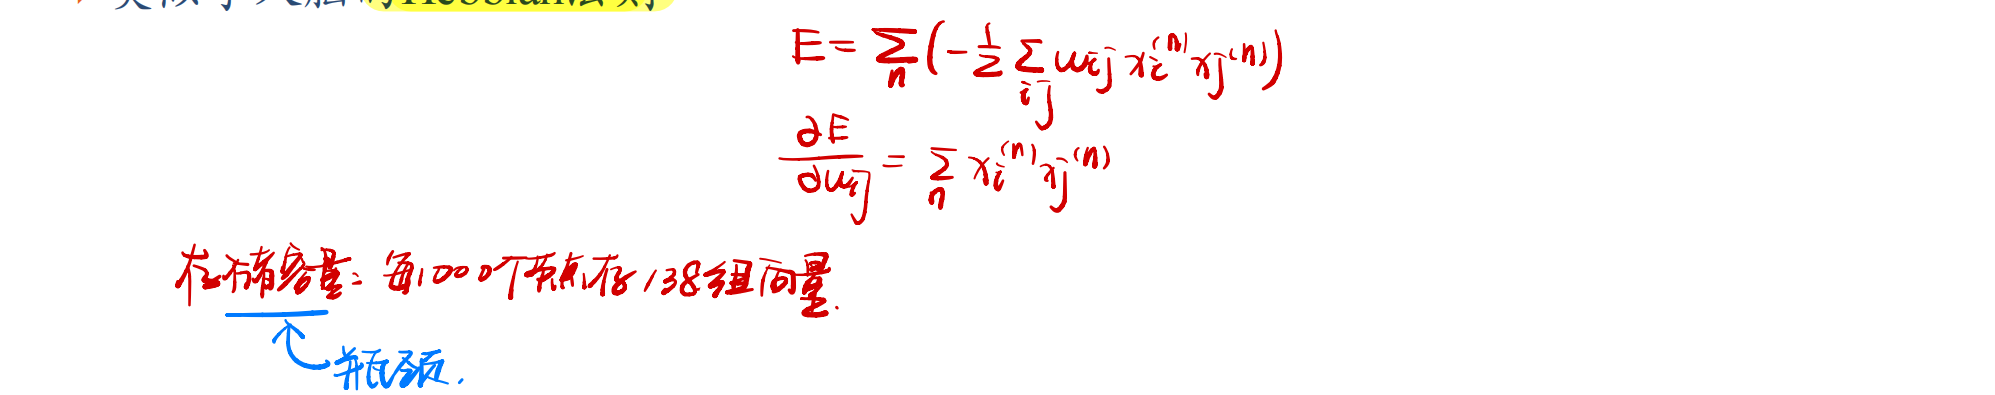 类似于人脑的Hebbian法则
E = ∑_n (-1/2 ∑_{ij} w_{ij} x_i^{(n)} x_j^{(n)})
∂E/∂w_{ij} = ∑_n x_i^{(n)} x_j^{(n)}
存储容量：每1000个节点存138组向量.
瓶颈.